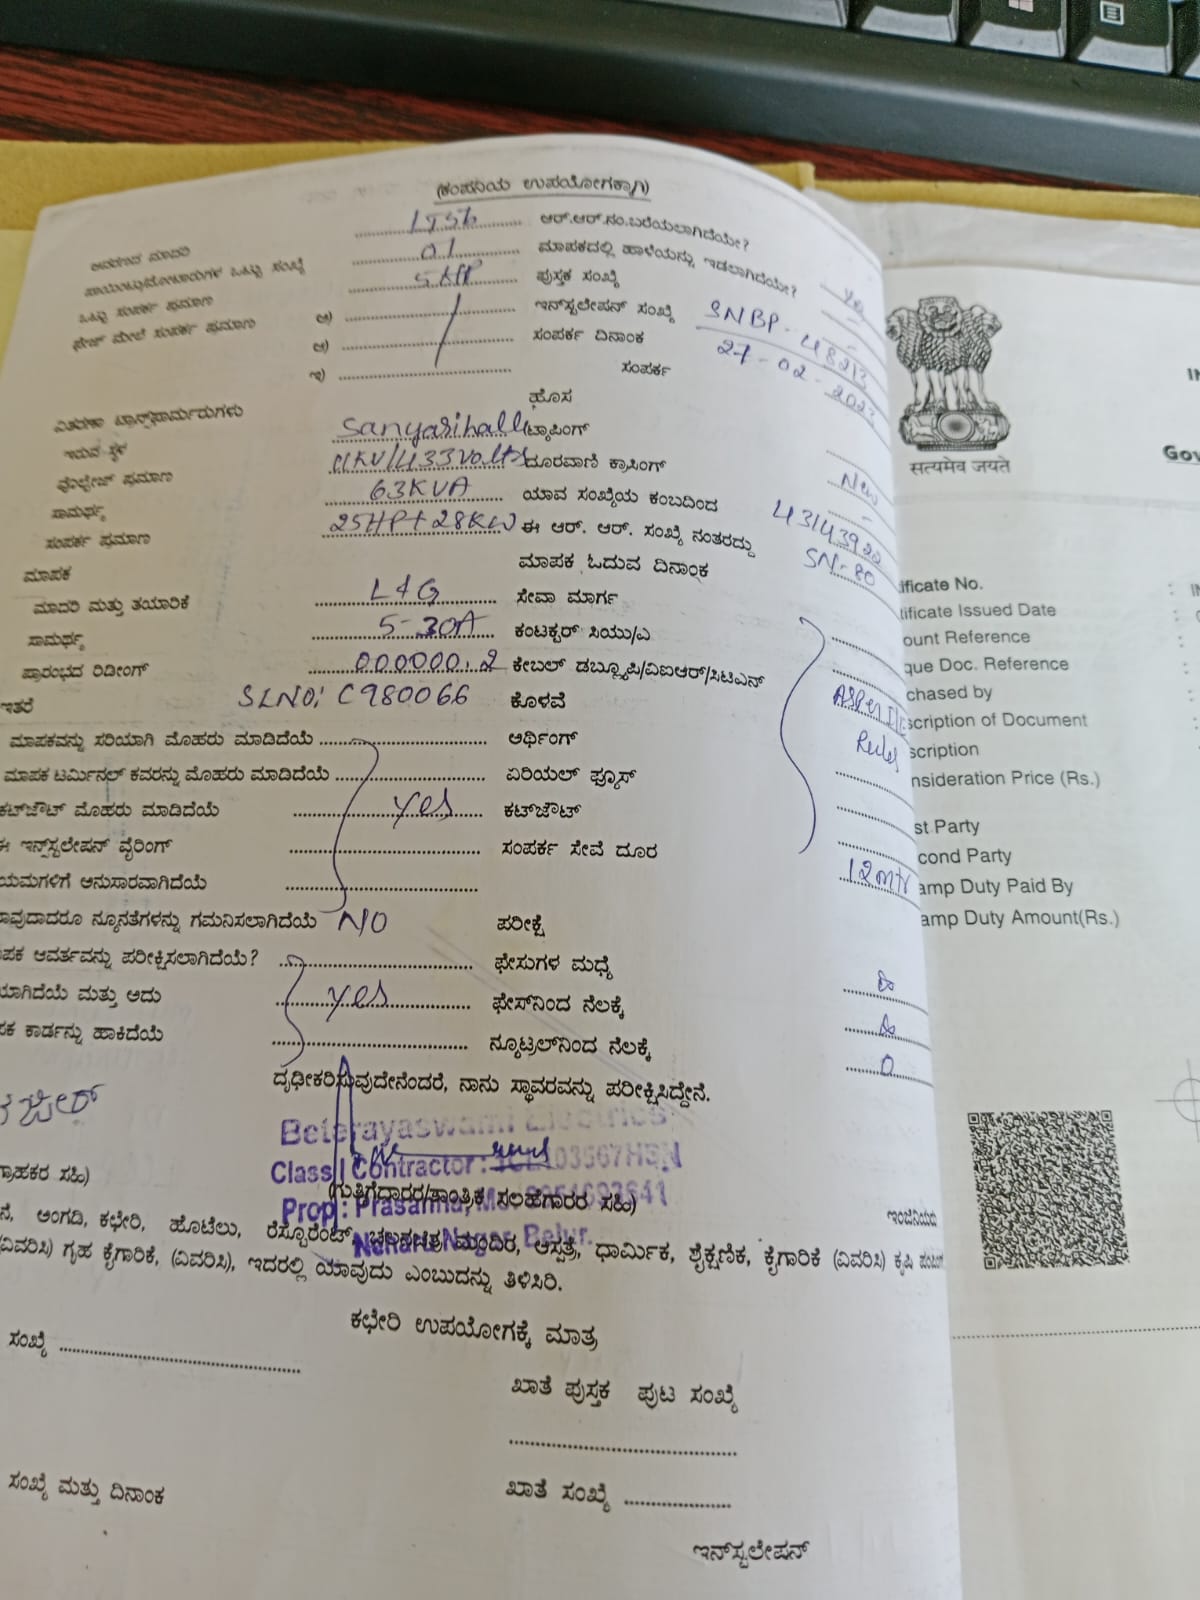 (ಕಂಪನಿಯ ಉಪಯೋಗಕ್ಕಾಗಿ)
ಆವರಣದ ಮಾದರಿ ಆರ್.ಆರ್.ನಂ.ಬರೆಯಲಾಗಿದೆಯೇ?
ಒಟ್ಟು ಸಂಖ್ಯೆ 01 ಮಾಪಕದಲ್ಲಿ ಹಾಳೆಯನ್ನು ಇಡಲಾಗಿದೆಯೇ?
ಒಟ್ಟು ಸಂಪರ್ಕ ಪ್ರಮಾಣ 5 HP ಪುಸ್ತಕ ಸಂಖ್ಯೆ
ಫೇಜ್ ಮೇಲೆ ಸಂಪರ್ಕ ಪ್ರಮಾಣ ಅ) ಇನ್‌ಸ್ಟಲೇಷನ್ ಸಂಖ್ಯೆ SNBP-48213
ಆ) ಸಂಪರ್ಕ ದಿನಾಂಕ 27-02-2023
ಇ) ಸಂಪರ್ಕ
ವಿತರಣಾ ಟ್ರಾನ್ಸ್‌ಫಾರ್ಮರುಗಳು ಹೊಸ New
ಇರುವ ಸ್ಥಳ Sanyasihalli ಟ್ಯಾಪಿಂಗ್ -
ವೊಲ್ಟೇಜ್ ಪ್ರಮಾಣ 11KV/433Volts ದೂರವಾಣಿ ಕ್ರಾಸಿಂಗ್
ಸಾಮರ್ಥ್ಯ 63KVA ಯಾವ ಸಂಖ್ಯೆಯ ಕಂಬದಿಂದ 43143922
ಸಂಪರ್ಕ ಪ್ರಮಾಣ 25HP+28KW ಈ ಆರ್. ಆರ್. ಸಂಖ್ಯೆ ನಂತರದ್ದು SN-80
ಮಾಪಕ ಮಾಪಕ ಓದುವ ದಿನಾಂಕ
ಮಾದರಿ ಮತ್ತು ತಯಾರಿಕೆ L&G ಸೇವಾ ಮಾರ್ಗ
ಸಾಮರ್ಥ್ಯ 5-30A ಕಂಟಕ್ಟರ್ ಸಿಯು/ಎ
ಪ್ರಾರಂಭದ ರಿಡೀಂಗ್ 000000.2 ಕೇಬಲ್ ಡಬ್ಲ್ಯೂಪಿ/ವಿಐಆರ್/ಸಿಟಿಎನ್
ಇತರೆ SLNO: C980066 ಕೊಳವೆ Asper
ಮಾಪಕವನ್ನು ಸರಿಯಾಗಿ ಮೊಹರು ಮಾಡಿದೆಯೆ ಅರ್ಥಿಂಗ್ Rules
ಮಾಪಕ ಟರ್ಮಿನಲ್ ಕವರನ್ನು ಮೊಹರು ಮಾಡಿದೆಯೆ ಏರಿಯಲ್ ಫ್ಯೂಸ್
ಕಟ್‌ಔಟ್ ಮೊಹರು ಮಾಡಿದೆಯೆ yes ಕಟ್‌ಔಟ್
ಈ ಇನ್ಸ್‌ಟಲೇಷನ್ ವೈರಿಂಗ್ ಸಂಪರ್ಕ ಸೇವೆ ದೂರ 12mtr
ಯಮಗಳಿಗೆ ಅನುಸಾರವಾಗಿದೆಯೆ
ಾವುದಾದರೂ ನ್ಯೂನತೆಗಳನ್ನು ಗಮನಿಸಲಾಗಿದೆಯೆ NO ಪರೀಕ್ಷೆ
ಪಕ ಆವರ್ತವನ್ನು ಪರೀಕ್ಷಿಸಲಾಗಿದೆಯೆ? ಫೇಸುಗಳ ಮಧ್ಯೆ
ಯಾಗಿದೆಯೆ ಮತ್ತು ಅದು yes ಫೇಸ್‌ನಿಂದ ನೆಲಕ್ಕೆ
ಪಕ ಕಾರ್ಡನ್ನು ಹಾಕಿದೆಯೆ ನ್ಯೂಟ್ರಲ್‌ನಿಂದ ನೆಲಕ್ಕೆ 0
ದೃಢೀಕರಿಸುವುದೇನೆಂದರೆ, ನಾನು ಸ್ಥಾವರವನ್ನು ಪರೀಕ್ಷಿಸಿದ್ದೇನೆ.
Beterayaswami Electrics
Class I Contractor :
ಗ್ರಾಹಕರ ಸಹಿ) (ಗುತ್ತಿಗೆದಾರರ/ತಾಂತ್ರಿಕ ಸಲಹೆಗಾರರ ಸಹಿ) ಇಂಜಿನಿಯರು
Prop : Prasanna,
ನೆ, ಅಂಗಡಿ, ಕಛೇರಿ, ಹೊಟೆಲು, ರೆಸ್ಟೊರೆಂಟ್, ಚಲನಚಿತ್ರ ಮಂದಿರ, ಆಸ್ಪತ್ರೆ, ಧಾರ್ಮಿಕ, ಶೈಕ್ಷಣಿಕ, ಕೈಗಾರಿಕೆ (ವಿವರಿಸಿ) ಕೃಷಿ
Nehru Nagar, Belur.
(ವಿವರಿಸಿ) ಗೃಹ ಕೈಗಾರಿಕೆ, (ವಿವರಿಸಿ), ಇದರಲ್ಲಿ ಯಾವುದು ಎಂಬುದನ್ನು ತಿಳಿಸಿರಿ.
ಕಛೇರಿ ಉಪಯೋಗಕ್ಕೆ ಮಾತ್ರ
ಸಂಖ್ಯೆ
ಖಾತೆ ಪುಸ್ತಕ ಪುಟ ಸಂಖ್ಯೆ
ಸಂಖ್ಯೆ ಮತ್ತು ದಿನಾಂಕ ಖಾತೆ ಸಂಖ್ಯೆ
ಇನ್‌ಸ್ಟಲೇಷನ್
सत्यमेव जयते
IN
Gov
ificate No. : IN
tificate Issued Date :
ount Reference :
que Doc. Reference :
chased by :
scription of Document :
scription :
nsideration Price (Rs.) :
st Party :
cond Party :
amp Duty Paid By :
amp Duty Amount(Rs.) :